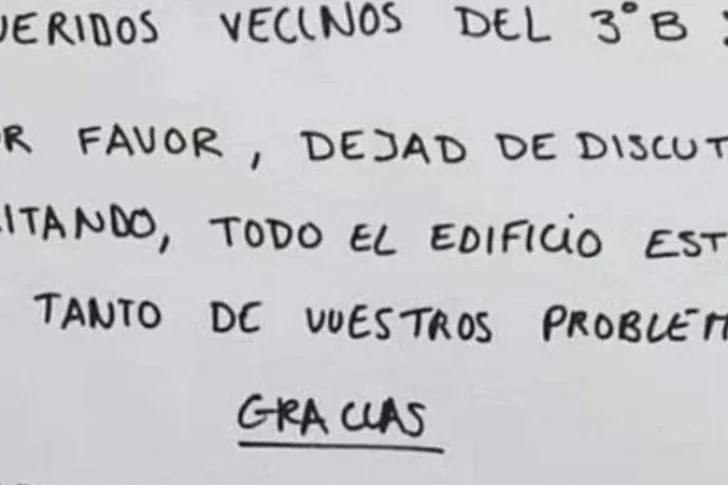 UERIDOS VECINOS DEL 3º B :
OR FAVOR, DEJAD DE DISCUT
ITANDO, TODO EL EDIFICIO EST
TANTO DE VUESTROS PROBLEM
GRACIAS